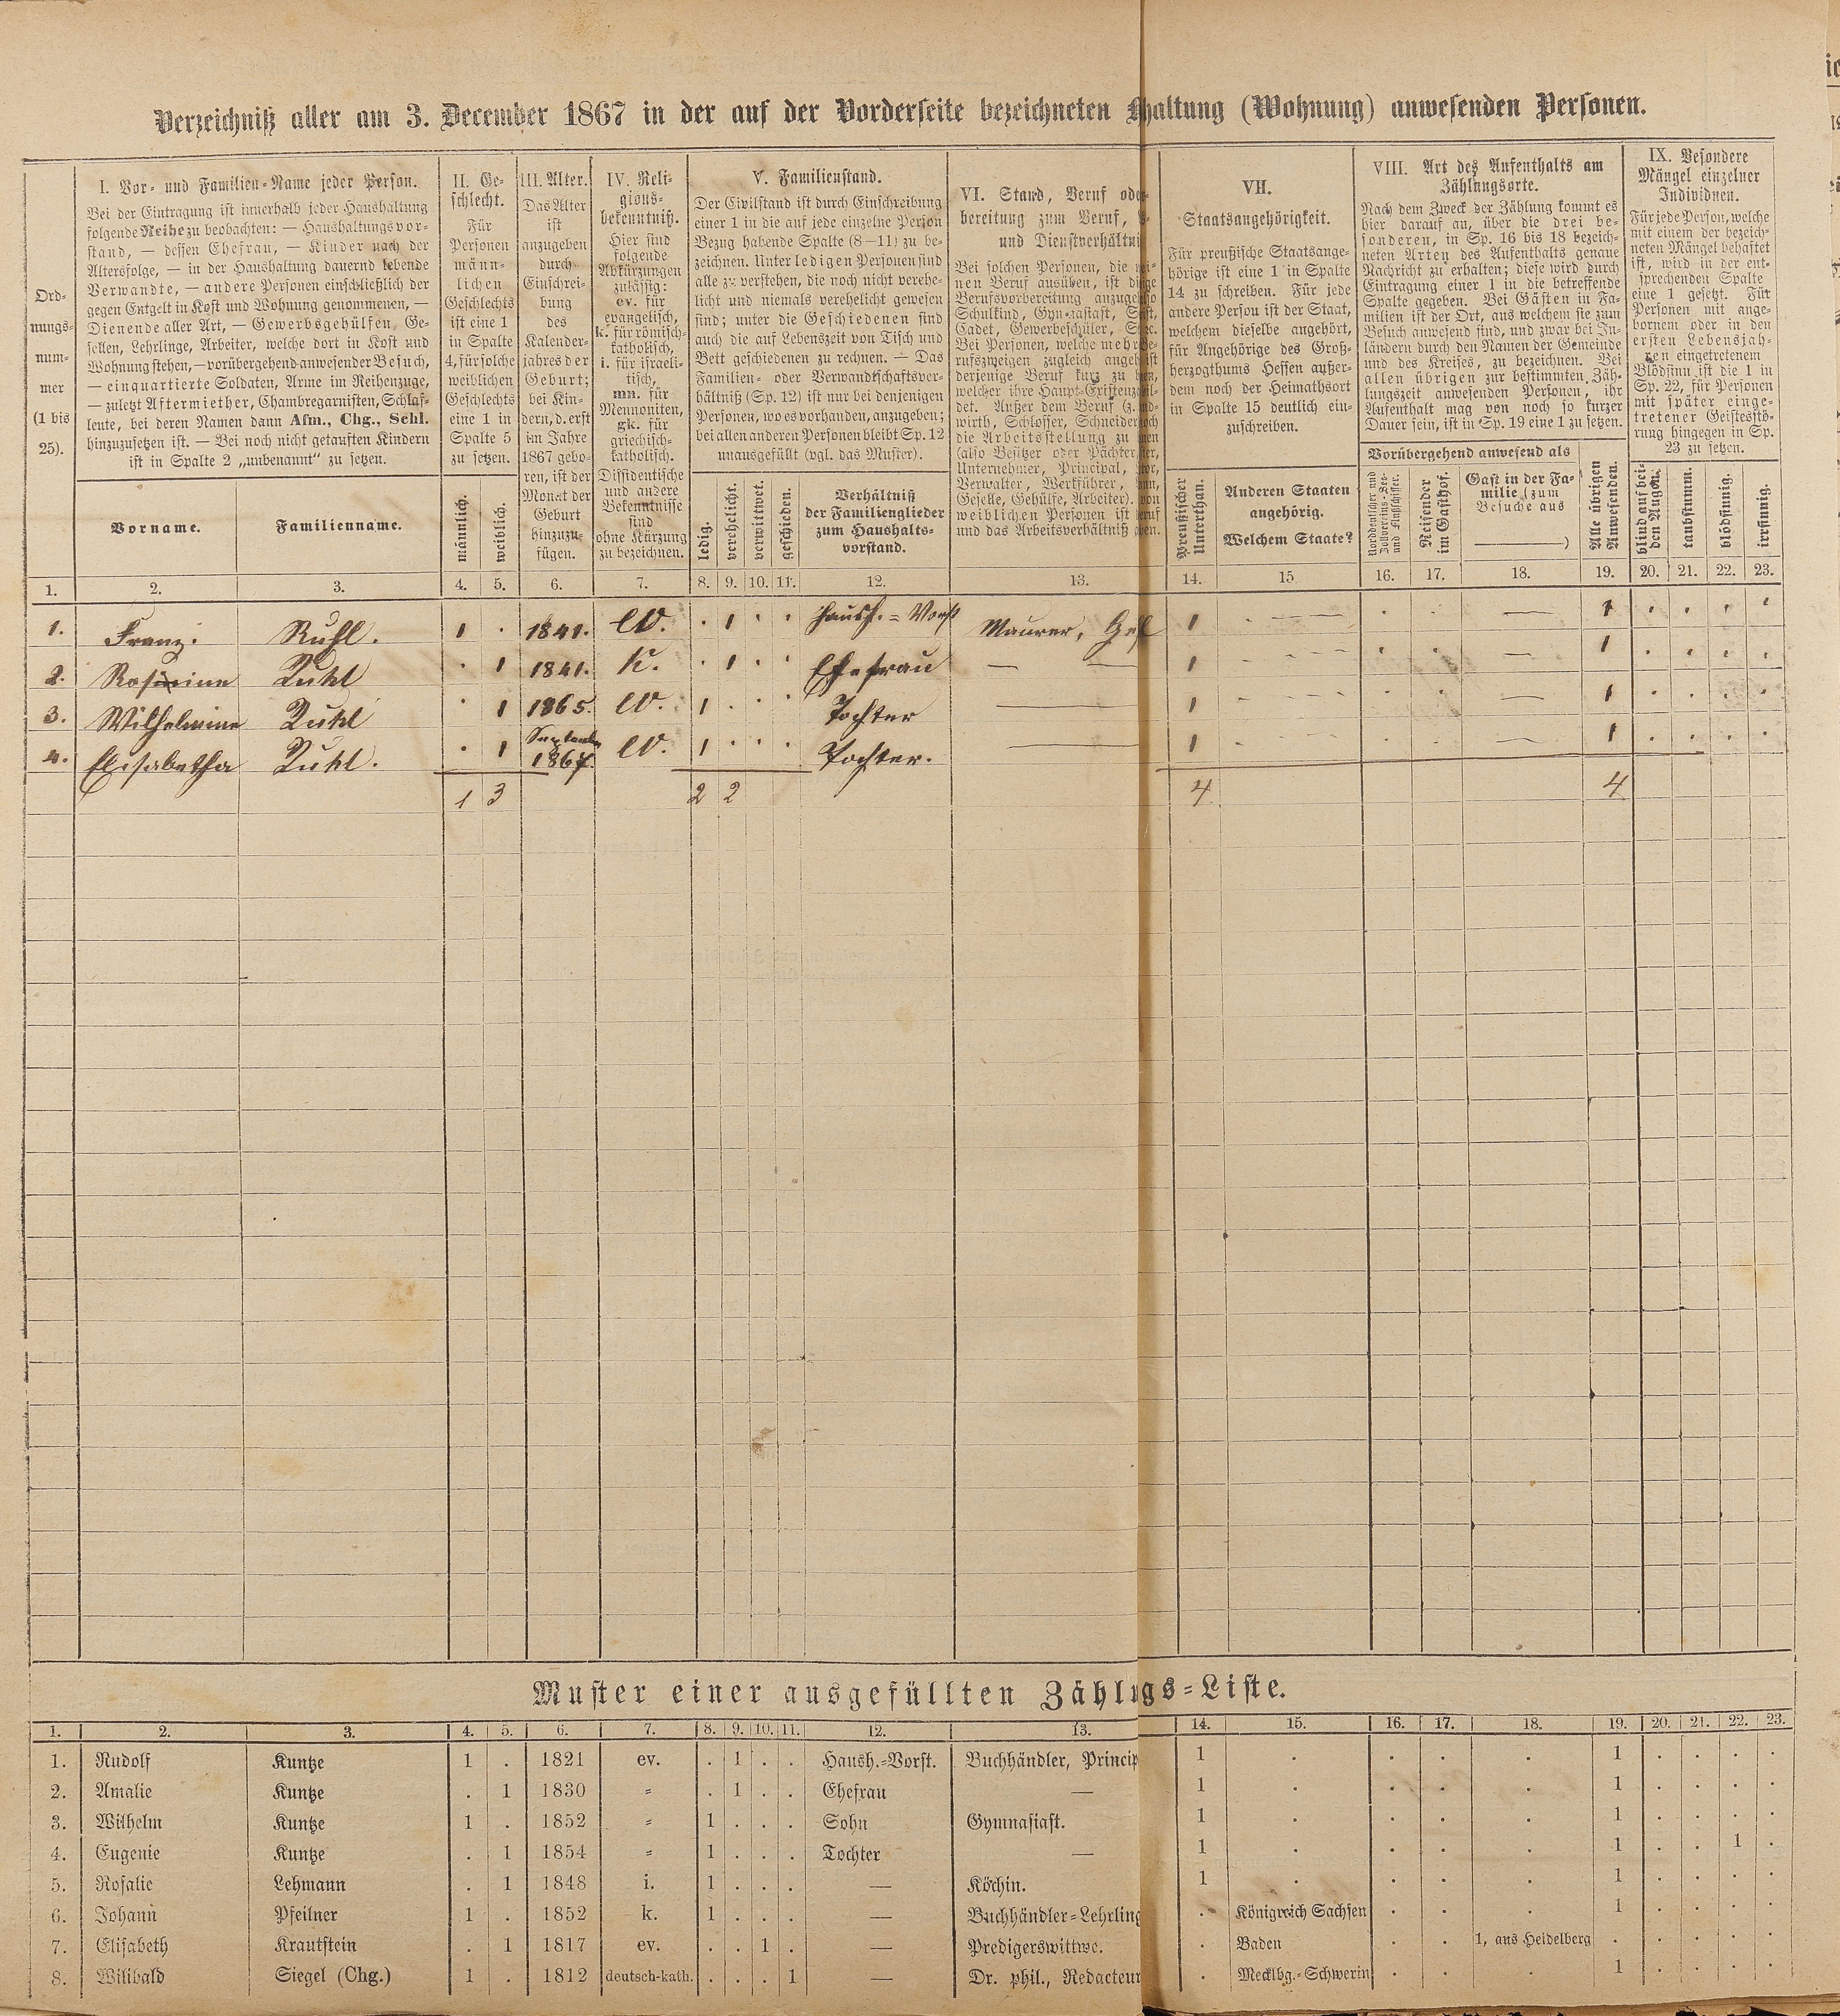 Verzeichniß aller am 3. December 1867 in der auf der Vorderseite bezeichneten haltung (Wohnung) anwesenden Personen.
Ord-
nungs-
num-
mer
(1 bis
25).
I. Vor- und Familien-Name jeder Person.
Bei der Eintragung ist innerhalb jeder Haushaltung
folgende Reihe zu beobachten: — Haushaltungsvor-
stand, — dessen Ehefrau, — Kinder nach der
Altersfolge, — in der Haushaltung dauernd lebende
Verwandte, — andere Personen einschließlich der
gegen Entgelt in Kost und Wohnung genommenen, —
Dienende aller Art, — Gewerbsgehülfen, Ge-
sellen, Lehrlinge, Arbeiter, welche dort in Kost und
Wohnung stehen, — vorübergehend anwesender Besuch,
— einquartierte Soldaten, Arme im Reihenzuge,
— zuletzt Aftermiether, Chambregarnisten, Schlaf-
leute, bei deren Namen dann Afm., Chg., Schl.
hinzuzusetzen ist. — Bei noch nicht getauften Kindern
ist in Spalte 2 „unbenannt“ zu setzen.
Vorname. Familienname.
II. Ge-
schlecht.
Für
Personen
männ-
lichen
Geschlechts
ist eine 1
in Spalte
4, für solche
weiblichen
Geschlechts
eine 1 in
Spalte 5
zu setzen.
männlich. weiblich.
III. Alter.
Das Alter
ist
anzugeben
durch
Einschrei-
bung
des
Kalender-
jahres der
Geburt;
bei Kin-
dern, d. erst
im Jahre
1867 gebo-
ren, ist der
Monat der
Geburt
hinzuzu-
fügen.
IV. Reli-
gions-
bekenntniß.
Hier sind
folgende
Abkürzungen
zulässig:
ev. für
evangelisch,
k. für römisch-
katholisch,
i. für israeli-
tisch,
mn. für
Mennoniten,
gk. für
griechisch-
katholisch.
Dissidentische
und andere
Bekenntnisse
sind
ohne Kürzung
zu bezeichnen.
V. Familienstand.
Der Civilstand ist durch Einschreibung
einer 1 in die auf jede einzelne Person
Bezug habende Spalte (8—11) zu be-
zeichnen. Unter ledigen Personen sind
alle zu verstehen, die noch nicht verehe-
licht und niemals verehelicht gewesen
sind; unter die Geschiedenen sind
auch die auf Lebenszeit von Tisch und
Bett geschiedenen zu rechnen. — Das
Familien- oder Verwandtschaftsver-
hältniß (Sp. 12) ist nur bei denjenigen
Personen, wo es vorhanden, anzugeben;
bei allen anderen Personen bleibt Sp. 12
unausgefüllt (vgl. das Muster).
ledig. verehelicht. verwittwet. geschieden.
Verhältniß
der Familienglieder
zum Haushalts-
vorstand.
VI. Stand, Beruf oder
bereitung zum Beruf,
und Dienstverhältni
Bei solchen Personen, die
nen Beruf ausüben, ist di
Berufsvorbereitung anzuge
Schulkind, Gymnasiast,
Cadet, Gewerbeschüler,
Bei Personen, welche mehr
rufszweigen zugleich ange
derjenige Beruf kurz zu
welcher ihre Haupt-Existenz
det. Außer dem Beruf (z.
wirth, Schlosser, Schneider
die Arbeitsstellung zu
(also Besitzer oder Pächter,
Unternehmer, Principal,
Verwalter, Werkführer,
Geselle, Gehülfe, Arbeiter).
weiblichen Personen ist
und das Arbeitsverhältniß
VII.
Staatsangehörigkeit.
Für preußische Staatsange-
hörige ist eine 1 in Spalte
14 zu schreiben. Für jede
andere Person ist der Staat,
welchem dieselbe angehört,
für Angehörige des Groß-
herzogthums Hessen außer-
dem noch der Heimathsort
in Spalte 15 deutlich ein-
zuschreiben.
Preußischer
Unterthan.
Anderen Staaten
angehörig.
Welchem Staate?
VIII. Art des Aufenthalts am
Zählungsorte.
Nach dem Zweck der Zählung kommt es
hier darauf an, über die drei be-
sonderen, in Sp. 16 bis 18 bezeich-
neten Arten des Aufenthalts genaue
Nachricht zu erhalten; diese wird durch
Eintragung einer 1 in die betreffende
Spalte gegeben. Bei Gästen in Fa-
milien ist der Ort, aus welchem sie zum
Besuch anwesend sind, und zwar bei In-
ländern durch den Namen der Gemeinde
und des Kreises, zu bezeichnen. Bei
allen übrigen zur bestimmten Zäh-
lungszeit anwesenden Personen, ihr
Aufenthalt mag von noch so kurzer
Dauer sein, ist in Sp. 19 eine 1 zu setzen.
Vorübergehend anwesend als
Norddeutscher und
Zollvereins-See-
und Flußschiffer.
Reisender
im Gasthof.
Gast in der Fa-
milie (zum
Besuche aus
)
Alle übrigen
Anwesenden.
IX. Besondere
Mängel einzelner
Individuen.
Für jede Person, welche
mit einem der bezeich-
neten Mängel behaftet
ist, wird in der ent-
sprechenden Spalte
eine 1 gesetzt. Für
Personen mit ange-
bornem oder in den
ersten Lebensjah-
ren eingetretenem
Blödsinn ist die 1 in
Sp. 22, für Personen
mit später einge-
tretener Geistesstö-
rung hingegen in Sp.
23 zu setzen.
blind auf bei-
den Augen.
taubstumm. blödsinnig. irrsinnig.
1. 2. 3. 4. 5. 6. 7. 8. 9. 10. 11. 12. 13. 14. 15 16. 17. 18. 19. 20. 21. 22. 23.
1. Franz. Ruhl. 1 . 1841. ev. . 1 . . Haush.=Vorst Maurer, Ges 1 — . . — 1 . . . .
2. Rosine Ruhl . 1 1841. K. . 1 . . Ehefrau — — 1 — . . — 1 . . . .
3. Wilhelmine Ruhl . 1 1865. ev. 1 . . . Tochter — 1 — . . — 1 . . . .
4. Elisabetha Ruhl. . 1 Septembr 1867. ev. 1 . . . Tochter. — 1 — . . — 1 . . . .
1 3 2 2 4 4
Muster einer ausgefüllten Zählu gs=Liste.
1. 2. 3. 4. 5. 6. 7. 8. 9. 10. 11. 12. 13. 14. 15. 16. 17. 18. 19. 20. 21. 22. 23.
1. Rudolf Kuntze 1 . 1821 ev. . 1 . . Haush.=Vorst. Buchhändler, Princip 1 . . . . 1 . . . .
2. Amalie Kuntze . 1 1830 = . 1 . . Ehefrau — 1 . . . . 1 . . . .
3. Wilhelm Kuntze 1 . 1852 = 1 . . . Sohn Gymnasiast. 1 . . . . 1 . . . .
4. Eugenie Kuntze . 1 1854 = 1 . . . Tochter — 1 . . . . 1 . . 1 .
5. Rosalie Lehmann . 1 1848 i. 1 . . . — Köchin. 1 . . . . 1 . . . .
6. Johann Pfeilner 1 . 1852 k. 1 . . . — Buchhändler=Lehrling . Königreich Sachsen . . . 1 . . . .
7. Elisabeth Krautstein . 1 1817 ev. . . 1 . — Predigerswittwe. . Baden . . 1, aus Heidelberg . . . . .
8. Wilibald Siegel (Chg.) 1 . 1812 deutsch-kath. . . . 1 — Dr. phil., Redacteur . Mecklbg.=Schwerin . . . 1 . . . .